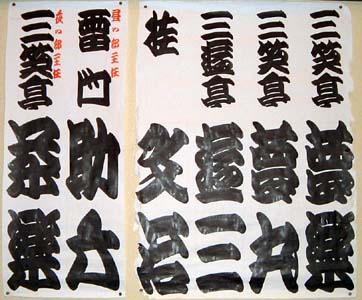 三笑亭夢楽
三笑亭夢丸
三遊亭遊三
桂文治
昼の部主任
雷門助六
夜の部主任
三笑亭茶楽